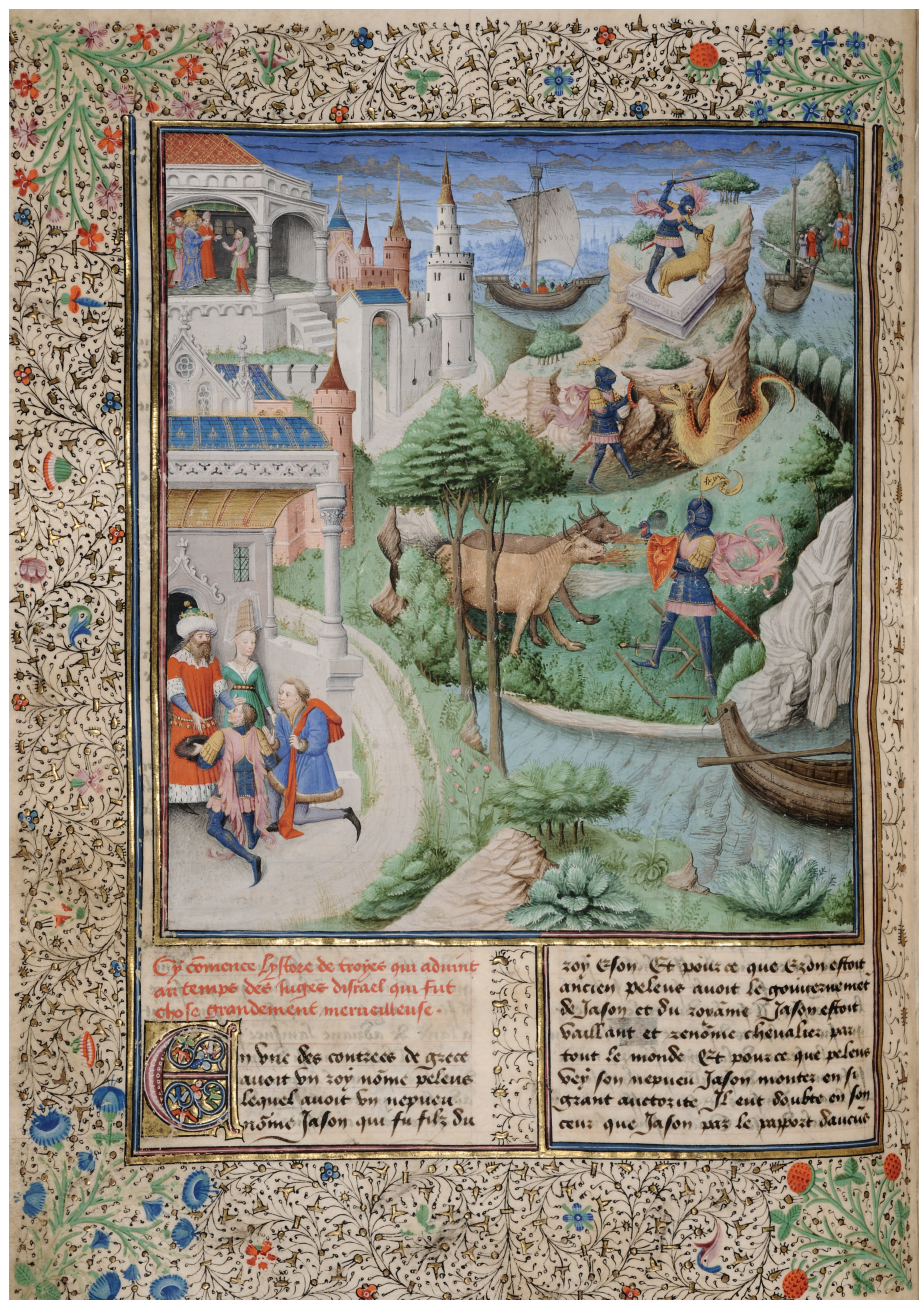 Cy cõmence lystore de troyes qui aduint
au temps des iuges disrael qui fut
chose grandement merueilleuse .
En vne des contrees de grece
auoit vn roy nõme peleus
lequel auoit vn nepueu
nõme Jason qui fu filz du
roy Eson . Et pour ce que Ezon estoit
ancien peleus auoit le gouuernemẽt
de Jason et du royaume Jason estoit
vaillant et renõme cheualier par
tout le monde Et pour ce que peleus
vey son nepueu Jason monter en si
grant auctorite Jl eut doubte en son
ceur que Jason par le rapport daucũs